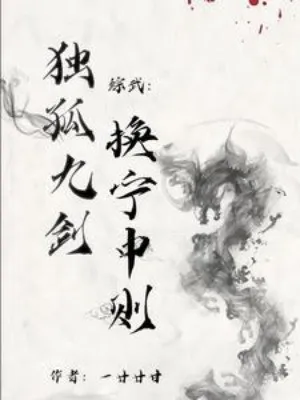 综武：
独孤九剑
换宁中则
作者：一廿廿廿